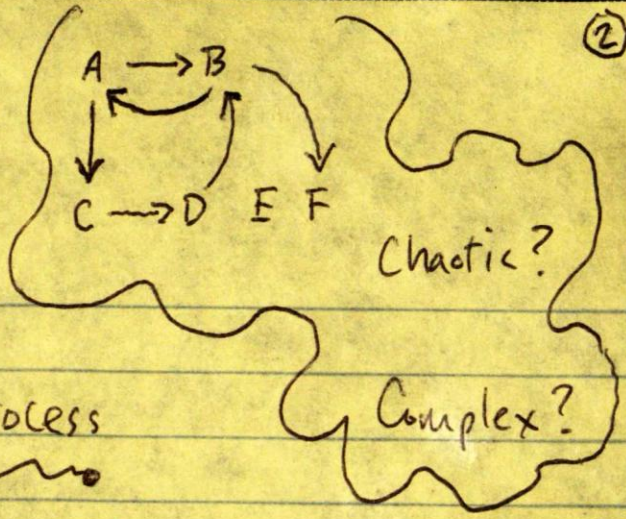 ②
A → B
C → D E F
Chaotic?
Complex?
ocess